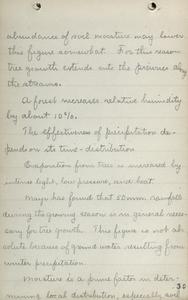 abundance of soil moisture may lower
this figure somewhat. For this reason
tree growth extends into the prairies along
the streams.
A forest increases relative humidity
by about 10%.
The effectiveness of precipitation de-
pends on its time-distribution.
Evaporation from trees is increased by
intense light, low pressure, and heat.
Mayr has found that 50mm. rainfall
during the growing season is in general neces-
sary for tree growth. This figure is not ab-
solute because of ground water resulting from
winter precipitation.
Moisture is a prime factor in deter-
mining local distribution, especially and